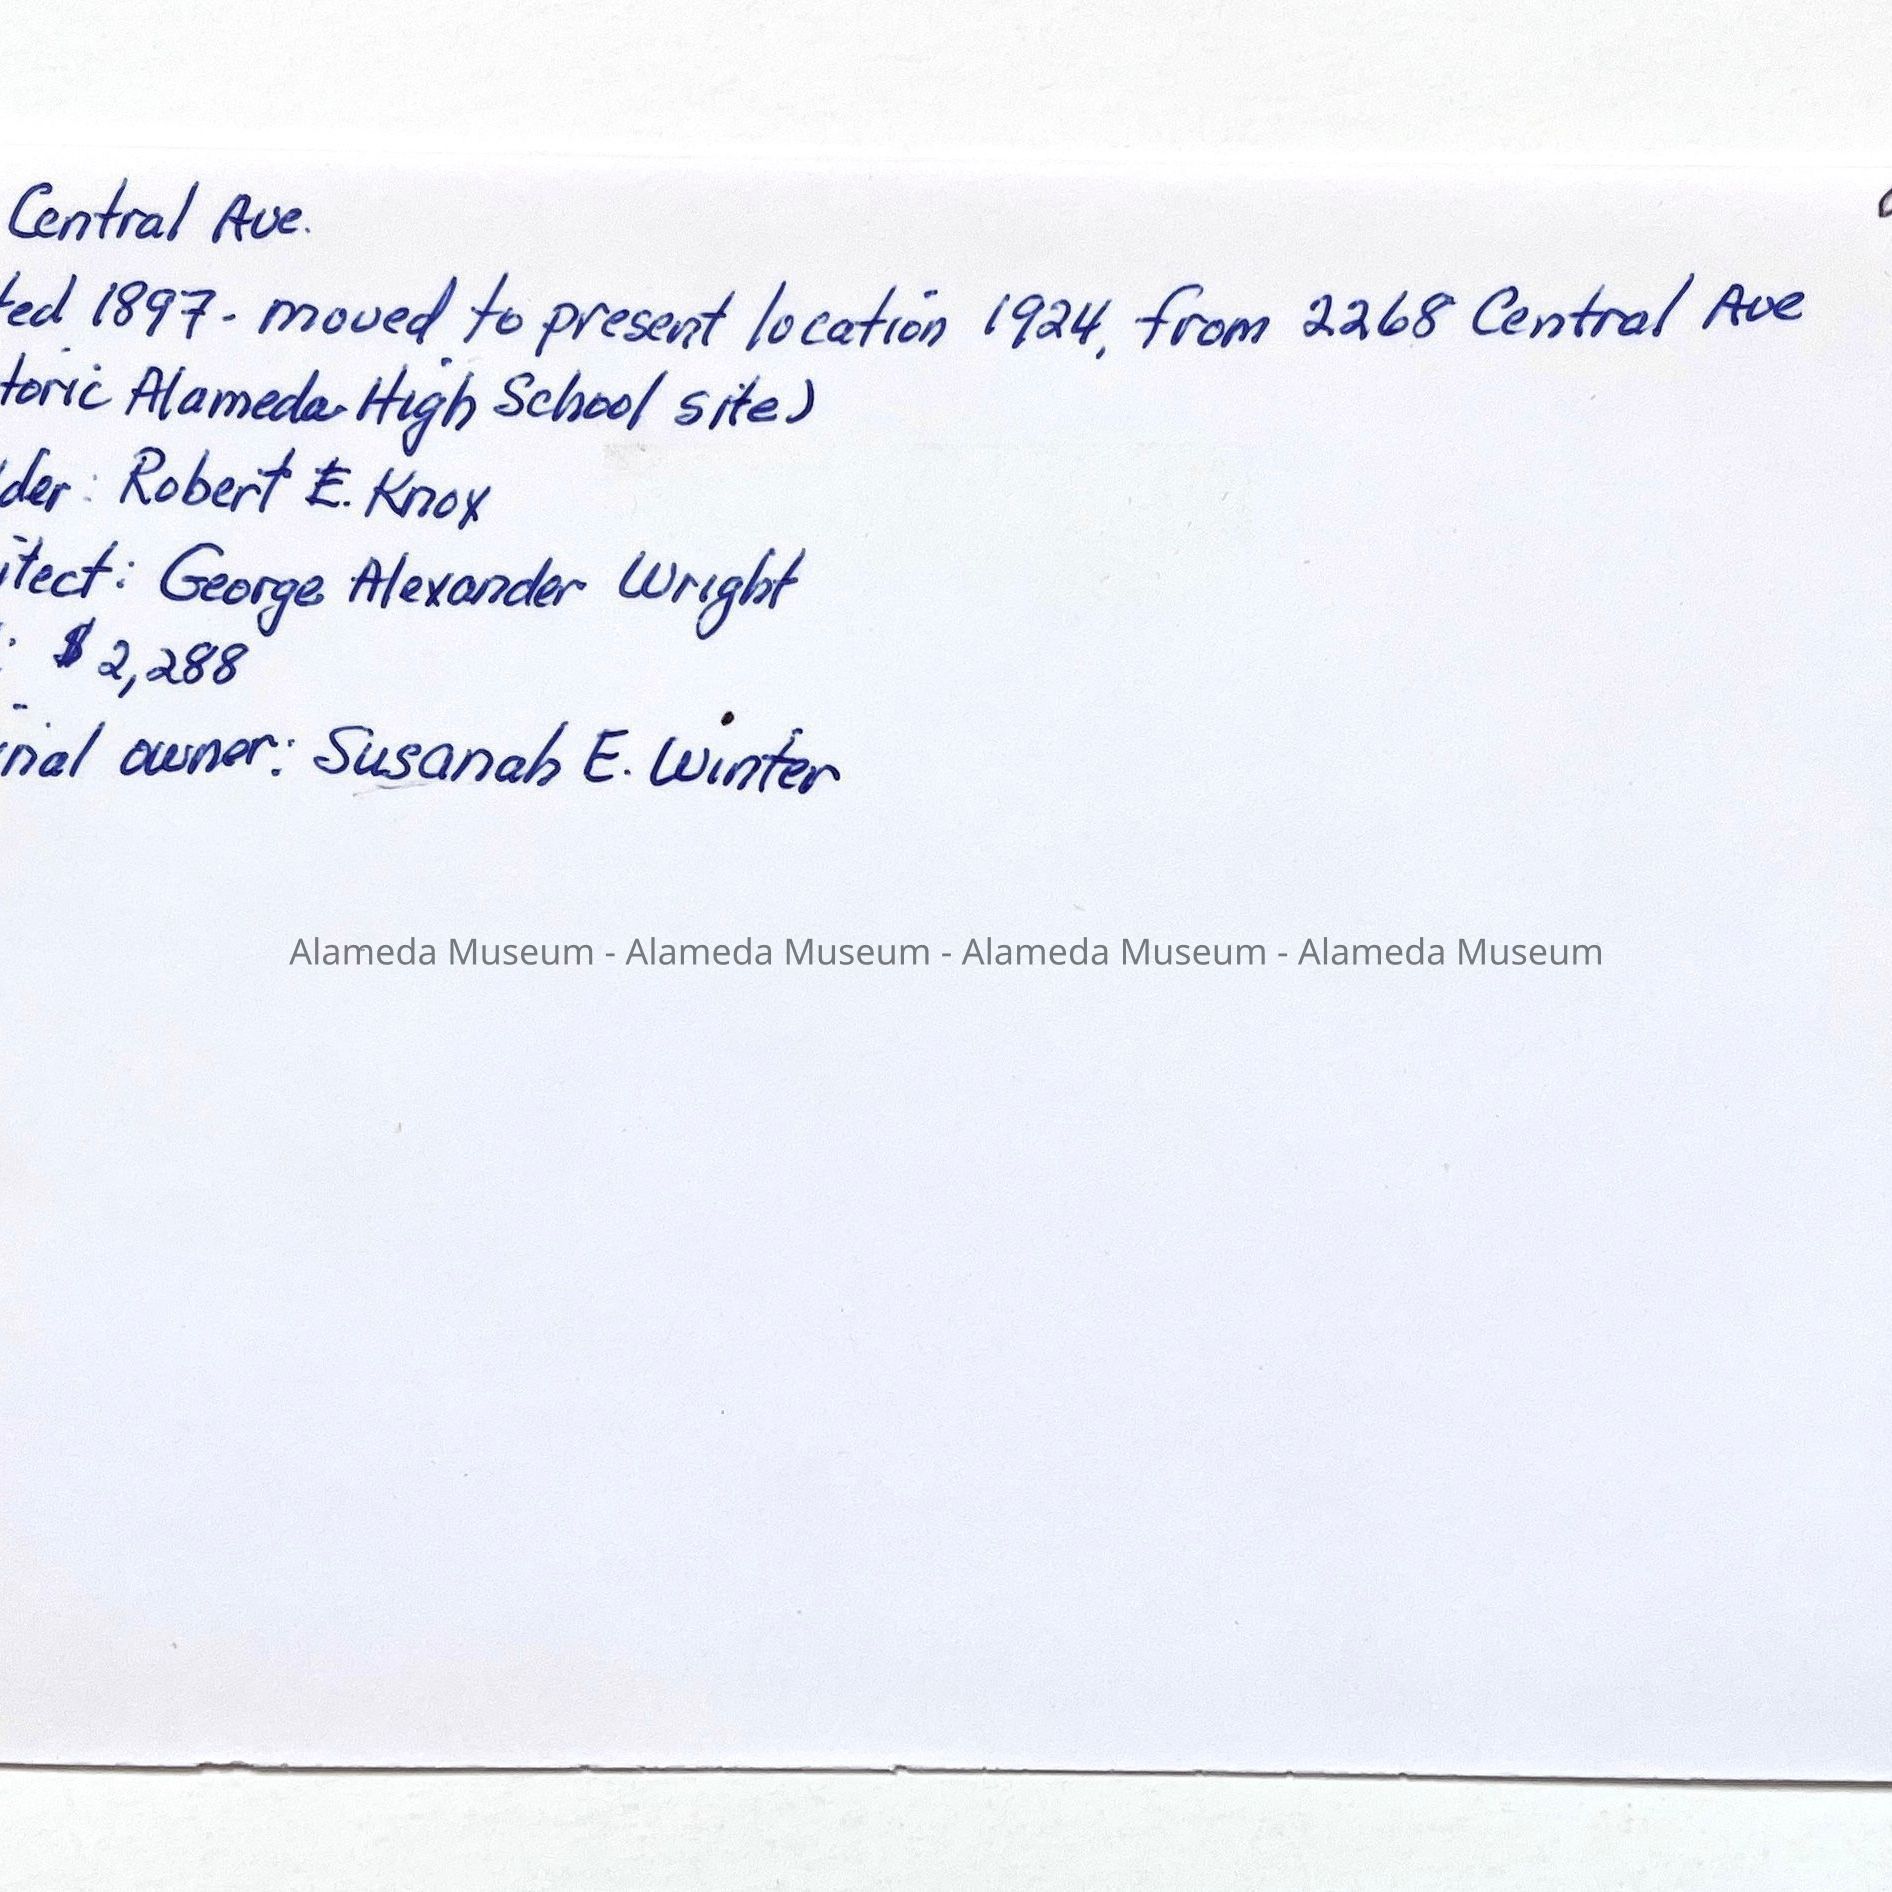 Central Ave.
ted 1897 - moved to present location 1924, from 2268 Central Ave
toric Alameda High School site)
der: Robert E. Knox
itect: George Alexander Wright
: $2,288
inal owner: Susanah E. Winter
Alameda Museum - Alameda Museum - Alameda Museum - Alameda Museum